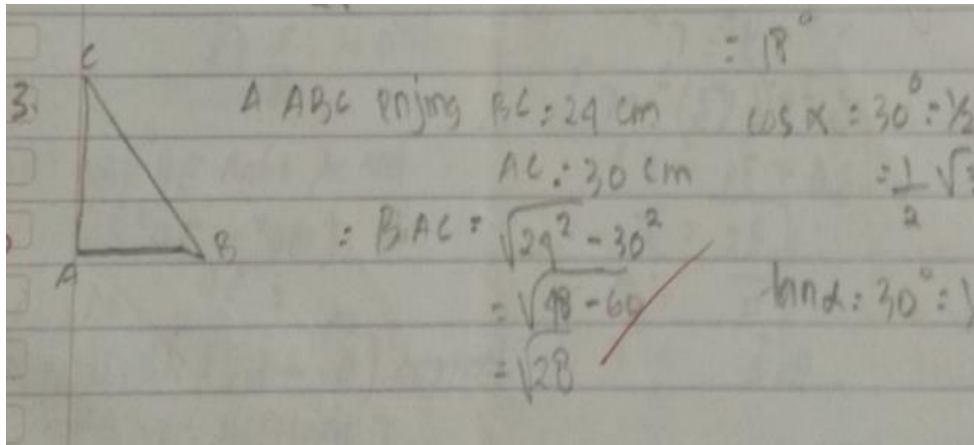 = 18°
3.
C
A
B
Δ ABC pnjng BC : 24 cm
AC : 30 cm
: BAC = √24² - 30²
= √48 - 60
= √28
cos α : 30° : ½
= 1/2 √3
tan α : 30° :